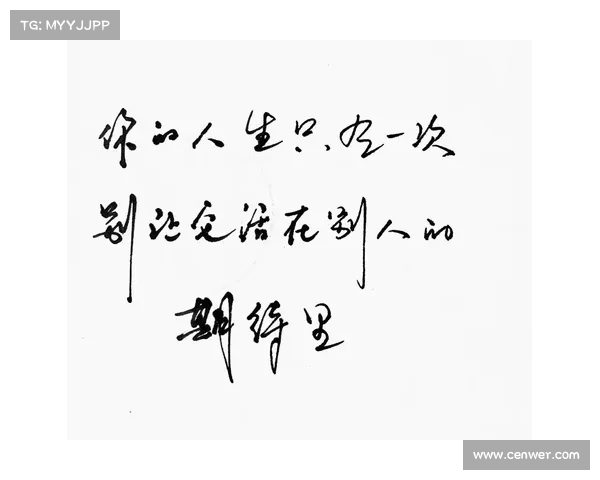 TG: MYYJJPP
你的人生只有一次
别让它活在别人的
期待里
www.cenwer.com